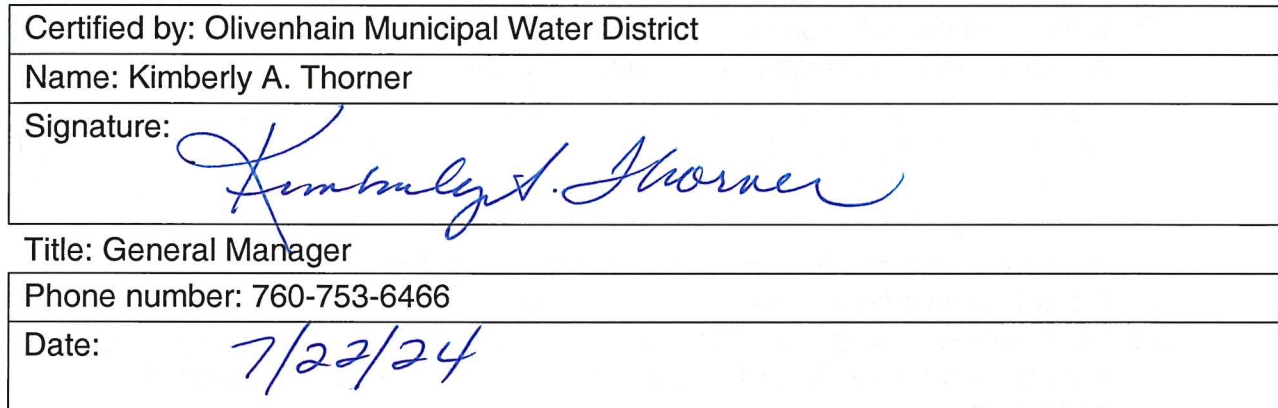 Certified by: Olivenhain Municipal Water District
Name: Kimberly A. Thorner
Signature: Kimberly A. Thorner
Title: General Manager
Phone number: 760-753-6466
Date: 7/22/24